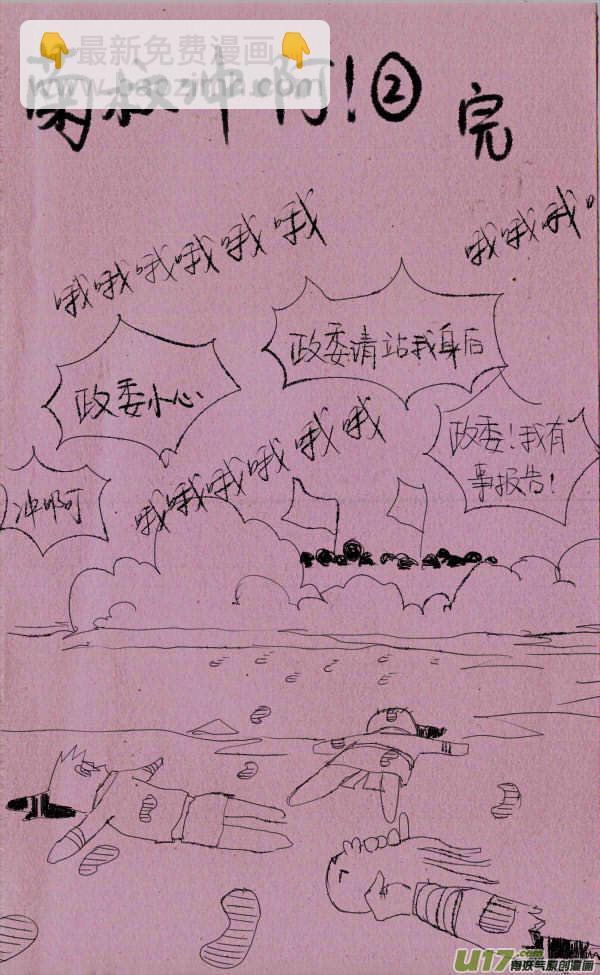 最新免费漫画
www.baozimh.com
菊叔冲啊!②
完
哦哦哦哦哦哦
哦哦哦
政委请站我身后
政委小心
政委!我有
事报告!
冲啊
哦哦哦哦哦哦
U17.com
有妖气原创漫画